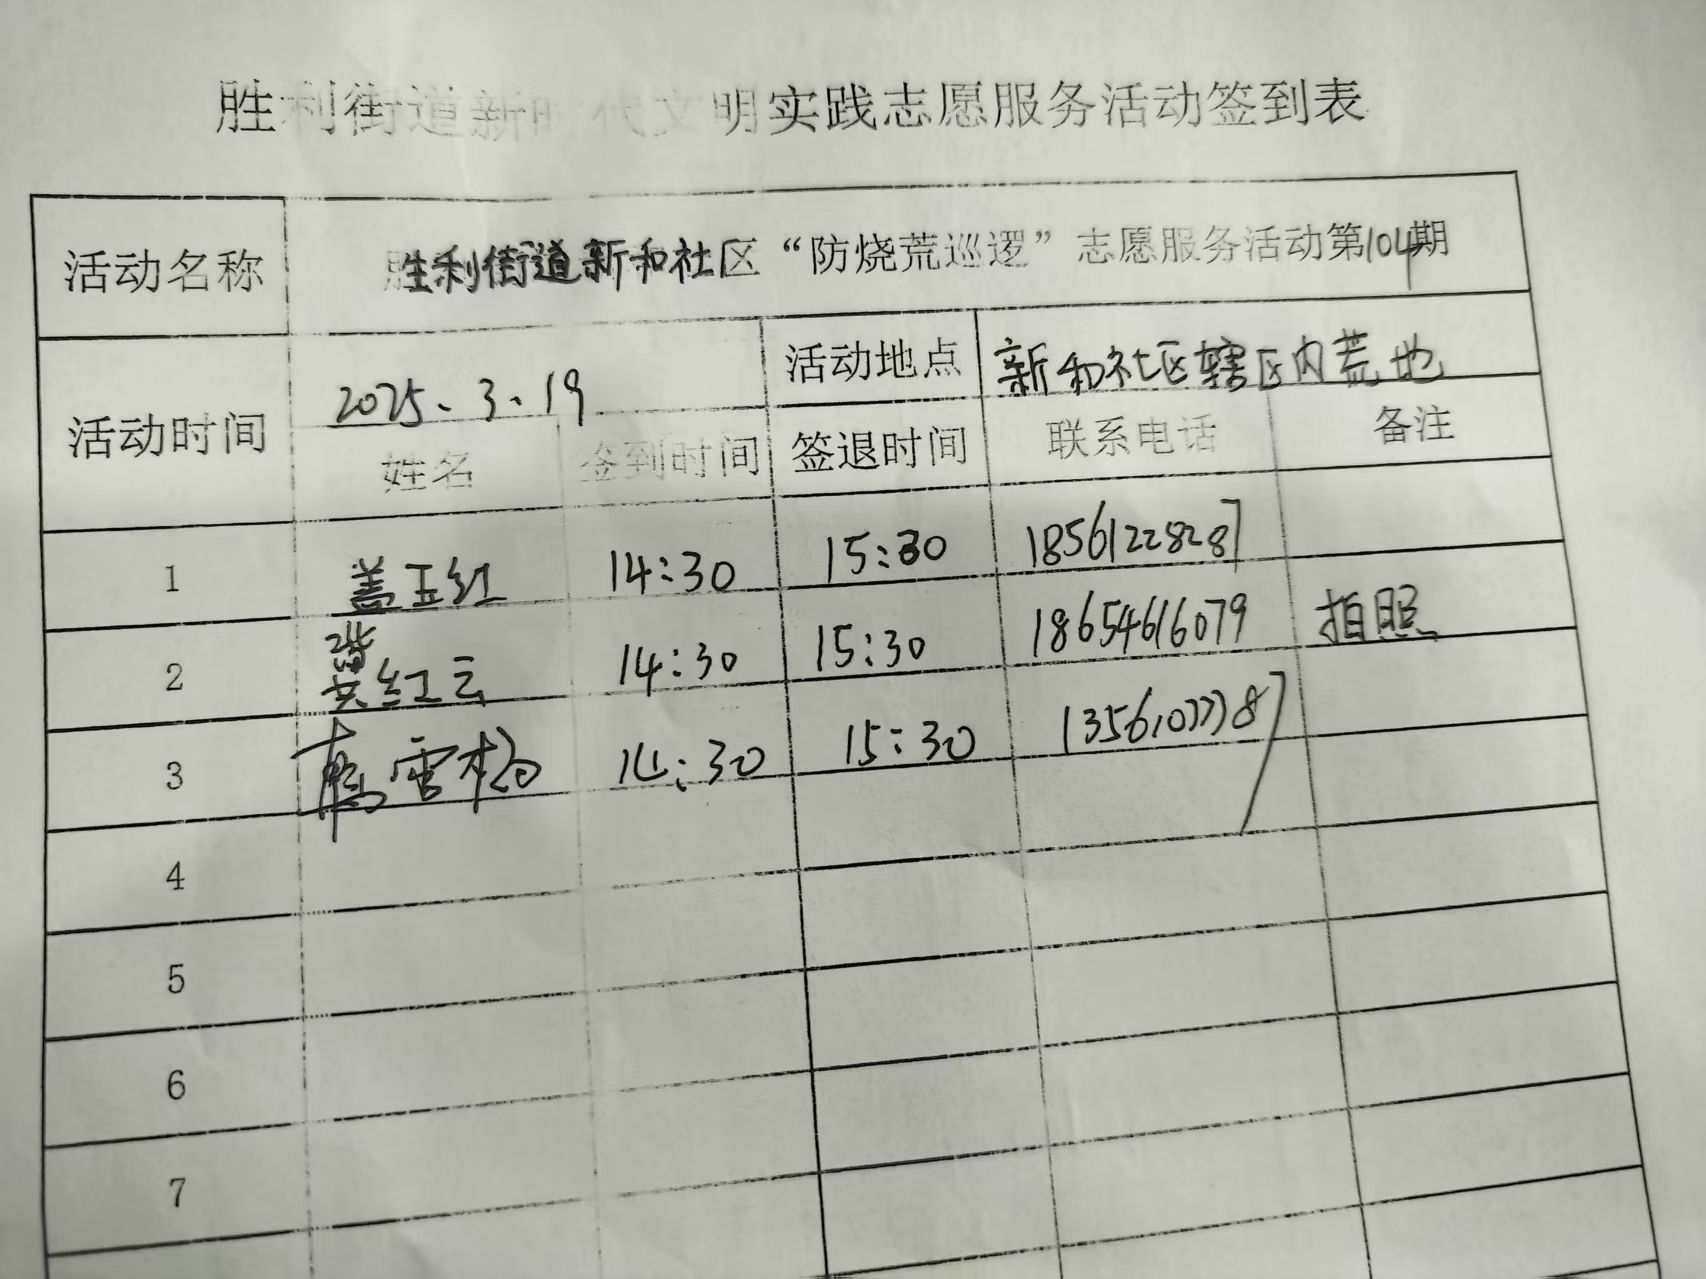 胜利街道新时代文明实践志愿服务活动签到表
活动名称 胜利街道新和社区“防烧荒巡逻”志愿服务活动第104期
活动时间 2025、3、19 活动地点 新和社区辖区内荒地
姓名 签到时间 签退时间 联系电话 备注
1 盖玉红 14:30 15:30 18561228287
2 红云 14:30 15:30 18654616079 拍照
3 雪梅 14:30 15:30
4
5
6
7